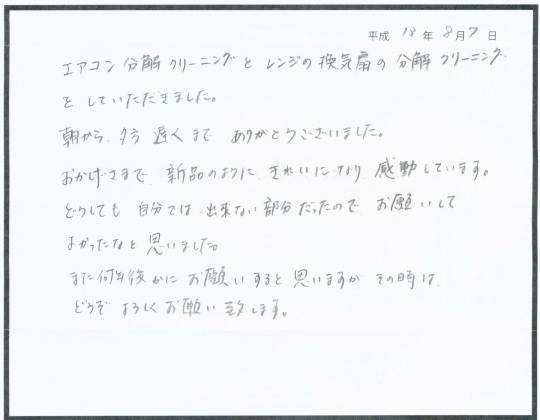 平成 18 年 8月7 日
エアコン分解クリーニングとレンジの換気扇の分解クリーニング
をしていただきました。
朝から、夕方遅くまでありがとうございました。
おかげさまで新品のようにきれいになり感動しています。
どうしても自分では出来ない部分だったのでお願いして
よかったなと思いました。
また何年後かにお願いすると思いますがその時は、
どうぞよろしくお願い致します。